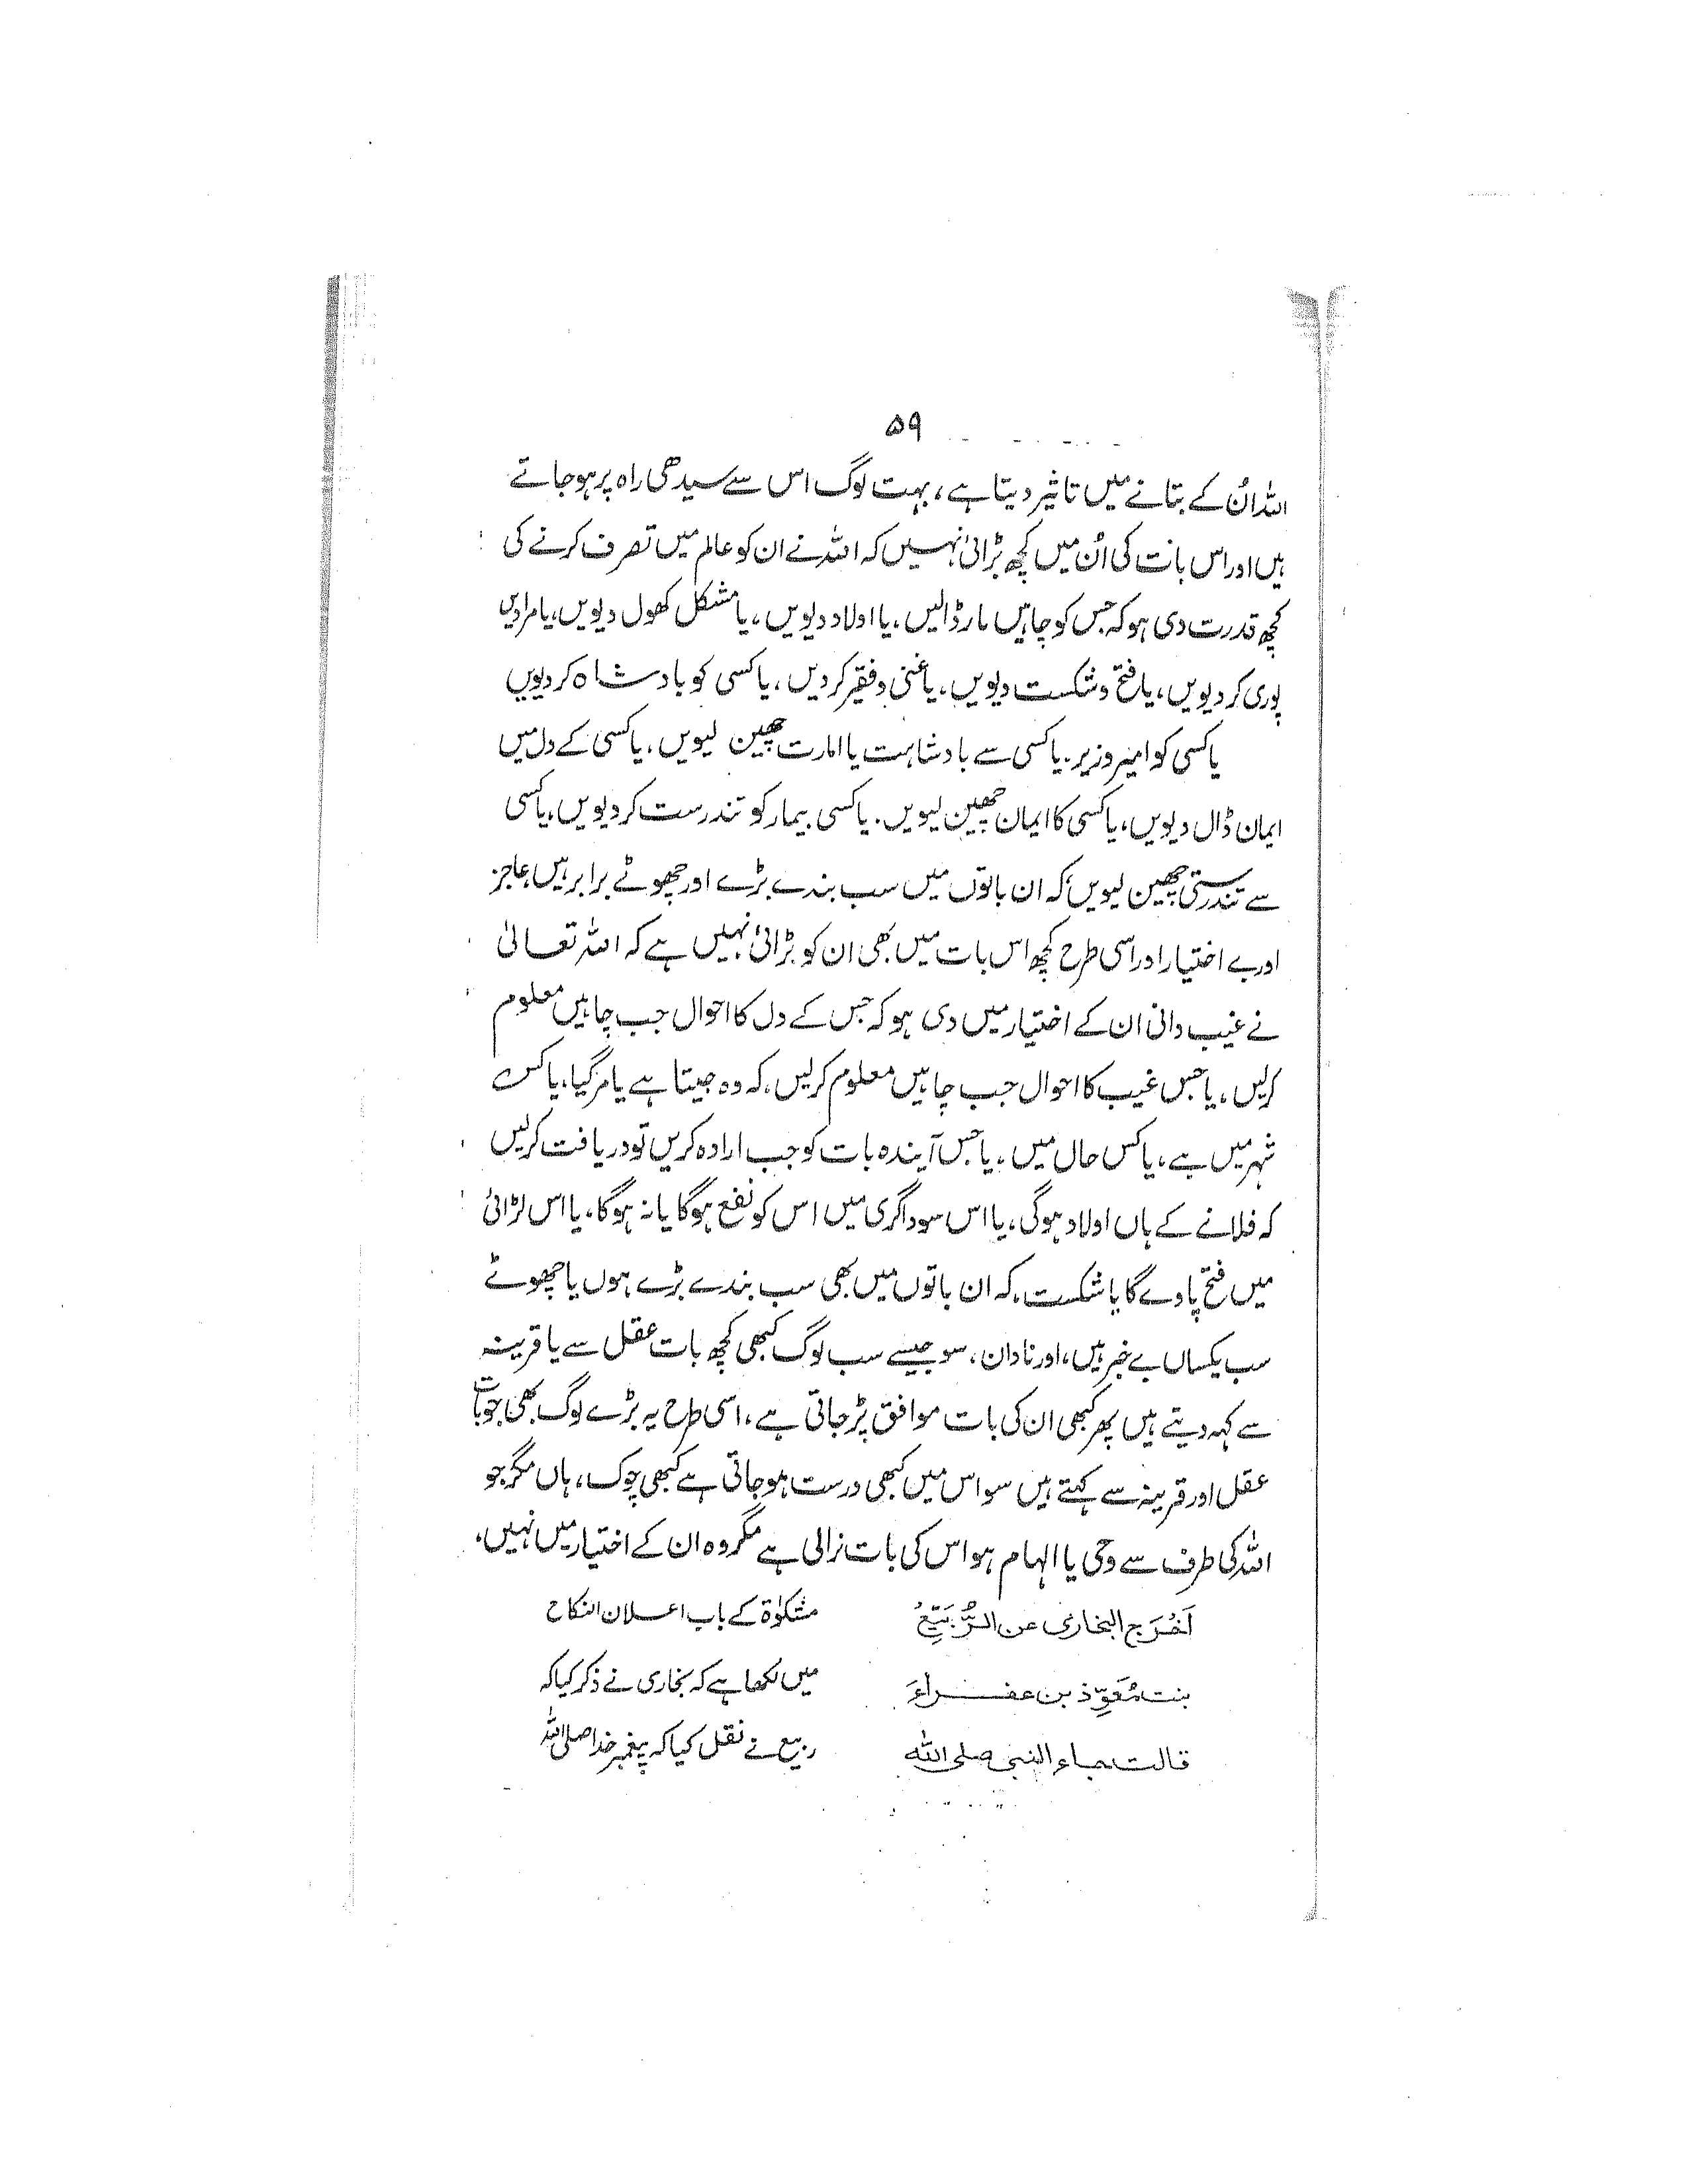 ۵۹
اللہ اُن کے بتانے میں تاثیر دیتا ہے، بہت لوگ اس سے سیدھی راہ پر ہوجاتے
ہیں اور اس بات کی اُن میں کچھ بڑائی نہیں کہ اللہ نے ان کو عالم میں تصرف کرنے کی
کچھ قدرت دی ہو کہ جس کو چاہیں مار ڈالیں، یا اولاد دیویں، یا مشکل کھول دیویں، یا مرادیں
پوری کر دیویں، یا فتح و شکست دیویں، یا غنی و فقیر کردیں، یا کسی کو بادشاہ کردیویں
یا کسی کو امیر وزیر۔ یا کسی سے بادشاہت یا امارت چھین لیویں، یا کسی کے دل میں
ایمان ڈال دیویں، یا کسی کا ایمان چھین لیویں۔ یا کسی بیمار کو تندرست کر دیویں، یا کسی
سے تندرستی چھین لیویں، کہ ان باتوں میں سب بندے بڑے اور چھوٹے برابر ہیں، عاجز
اور بے اختیار اور اسی طرح کچھ اس بات میں بھی ان کو بڑائی نہیں ہے کہ اللہ تعالیٰ
نے غیب دانی ان کے اختیار میں دی ہو کہ جس کے دل کا احوال جب چاہیں معلوم
کرلیں، یا جس غیب کا احوال جب چاہیں معلوم کرلیں، کہ وہ جیتا ہے یا مرگیا، یا کس
شہر میں ہے، یا کس حال میں، یا جس آیندہ بات کو جب ارادہ کریں تو دریافت کرلیں
کہ فلانے کے ہاں اولاد ہوگی، یا اس سوداگری میں اس کو نفع ہوگا یا نہ ہوگا، یا اس لڑائی
میں فتح پاوے گا یا شکست، کہ ان باتوں میں بھی سب بندے بڑے ہوں یا چھوٹے
سب یکساں بے خبر ہیں، اور نادان، سو جیسے سب لوگ کبھی کچھ بات عقل سے یا قرینہ
سے کہہ دیتے ہیں پھر کبھی ان کی بات موافق پڑ جاتی ہے، اسی طرح یہ بڑے لوگ بھی جو بات
عقل اور قرینہ سے کہتے ہیں سو اس میں کبھی درست ہوجاتی ہے کبھی چوک، ہاں مگر جو
اللہ کی طرف سے وحی یا الہام ہو اس کی بات نرالی ہے مگر وہ ان کے اختیار میں نہیں۔
اَخْرَج البخاری عن الرُّبَیِّعِ
بنت مُعَوِّذ بن عفراءَ
قالت جاء النبی صلی اللہ
مشکوٰۃ کے باب اعلان النکاح
میں لکھا ہے کہ بخاری نے ذکر کیا کہ
ربیع نے نقل کیا کہ پیغمبر خدا صلی اللہ